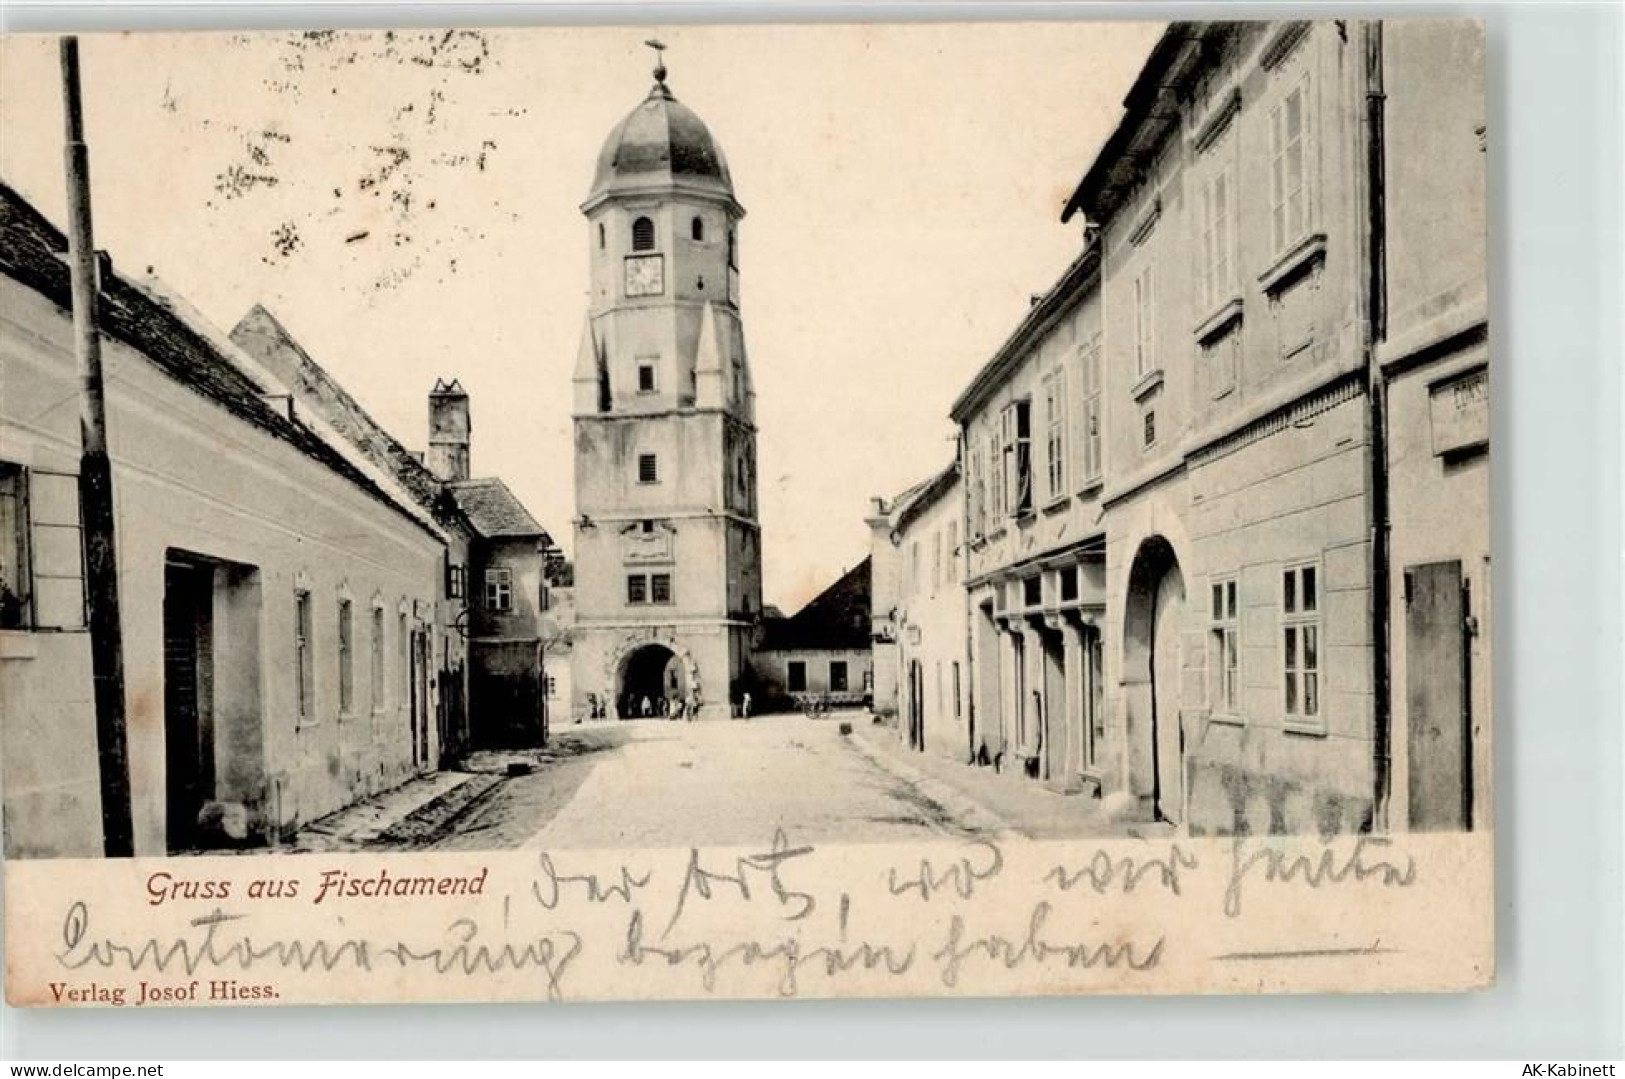 CONSU
Gruss aus Fischamend, der Ort, wo wir heute
Contonierung bezogen haben
Verlag Josof Hiess.
www.delcampe.net
AK-Kabinett